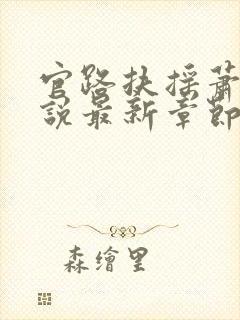 官路扶摇萧
說最新章節
森繪里